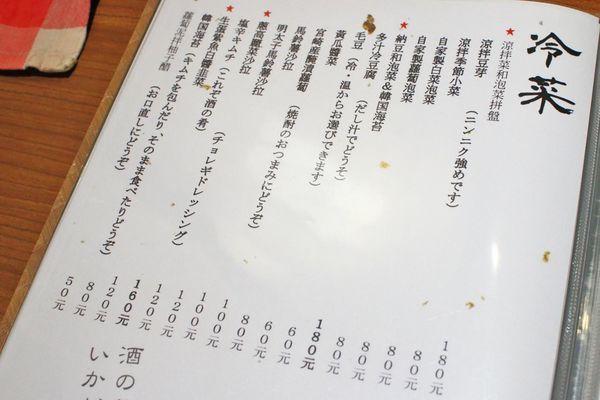 冷菜
★涼拌菜和泡菜拼盤 180元
涼拌豆芽（ニンニク強めです） 80元
涼拌季節小菜 80元
自家製白菜泡菜 80元
自家製蘿蔔泡菜 80元
★納豆和泡菜&韓国海苔 180元
多汁冷豆腐（だし汁でどうぞ） 60元
毛豆（冷・温からお選びできます） 60元
黃瓜醬菜 80元
宮崎産醃漬蘿蔔（焼酎のおつまみにどうぞ） 100元
馬鈴薯沙拉 100元
明太子馬鈴薯沙拉 120元
★蔥高麗菜沙拉（チョレギドレッシング） 120元
塩辛キムチ（これぞ酒の肴） 160元
★生蛋紫魚白醬韭菜 120元
韓国海苔（キムチを包んだり、そのまま食べたりどうぞ） 80元
蘿蔔泥拌柚子醋（お口直しにどうぞ） 50元
酒の
いか